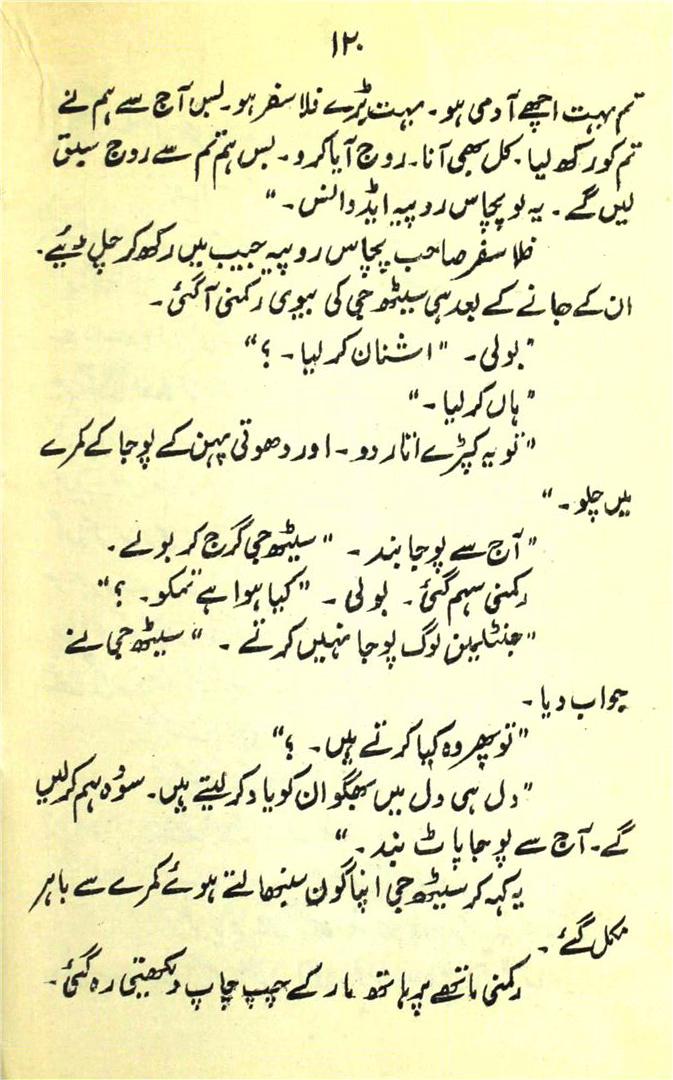 ۱۲۰
تم بہت اچھے آدمی ہو۔ بہت بڑے فلاسفر ہو۔ بس آج سے ہم نے
تم کو رکھ لیا۔ کل بھی آنا۔ روج آیا کرو۔ بس ہم تم سے روج سبق
لیں گے۔ یہ لو پچاس روپیہ ایڈوانس۔"
فلاسفر صاحب پچاس روپیہ جیب میں رکھ کر چل دیئے۔
ان کے جانے کے بعد ہی سیٹھ جی کی بیوی رکمنی آگئی۔
"بولی۔ "اشنان کر لیا۔ ؟"
"ہاں کر لیا۔"
"تو یہ کپڑے اتار دو۔ اور دھوتی پہن کے پوجا کے کمرے
میں چلو۔"
"آج سے پوجا بند۔ "سیٹھ جی گرج کر بولے۔
رکمنی سہم گئی۔ بولی۔ "کیا ہوا ہے تمکو۔ ؟"
"جنٹلمین لوگ پوجا نہیں کرتے۔ "سیٹھ جی نے
جواب دیا۔
"تو پھر وہ کیا کرتے ہیں۔ ؟"
"دل ہی دل میں بھگوان کو یاد کر لیتے ہیں۔ سو وہ ہم کرلیں
گے۔ آج سے پوجا پاٹ بند۔"
یہ کہہ کر سیٹھ جی اپنا گون سنبھالتے ہوئے کمرے سے باہر
نکل گئے۔
رکمنی ماتھے پر ہاتھ مار کے چپ چاپ دیکھتی رہ گئی۔